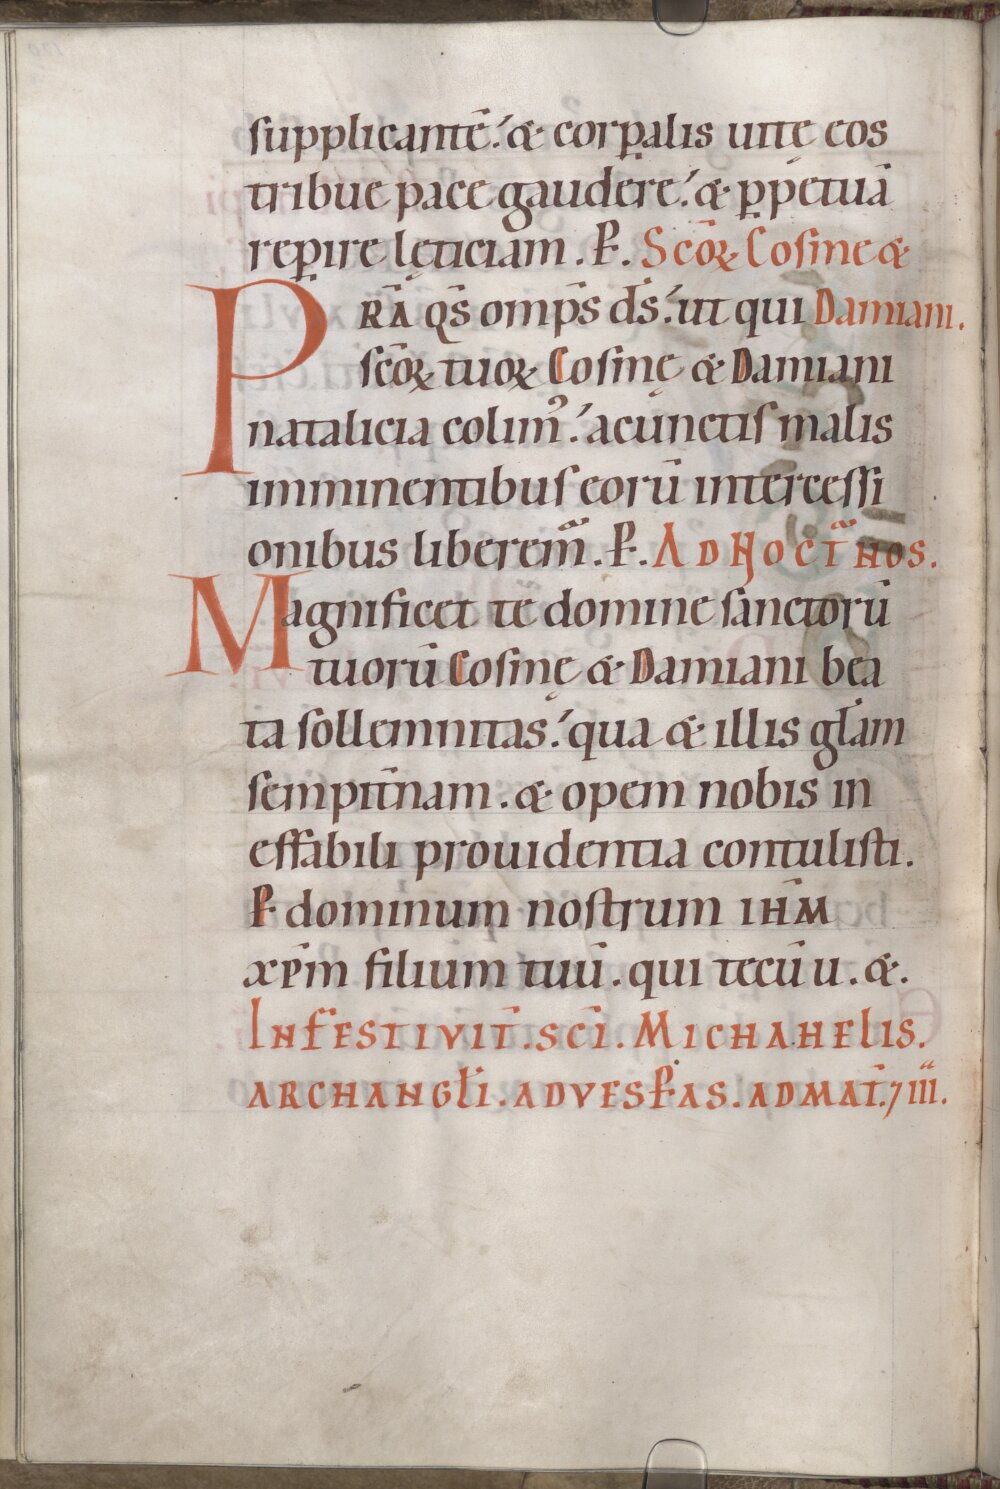 supplicantē. & corꝑalis uitę eos
tribue pace gaudere. & ꝑpetuā
reꝑire lęticiam. P̄. Scōꝝ Cosme &
PRǢA QS̄ omp̄s d̄s. ut qui Damiani.
scōꝝ tuoꝝ Cosmę & Damiani
natalicia colimꝰ. a cunctis malis
imminentibus eorū intercessi
onibus liberem̄. P̄. AD HOC T̄ NOS.
Magnificet te domine sanctorū
tuorū Cosmę & Damiani bea
ta sollemnitas. qua & illis gl̄am
sempit̄nam. & opem nobis in
effabili prouidentia contulisti.
P̄ dominum nostrum IHM̄
xp̄m filium tuū. qui tecū u. &.
IN FESTIVIT̄. SC̄I. MICHAHELIS.
ARCHANGL̄I. AD VESP̄AS. AD MAT̄. ⁊ IIII.